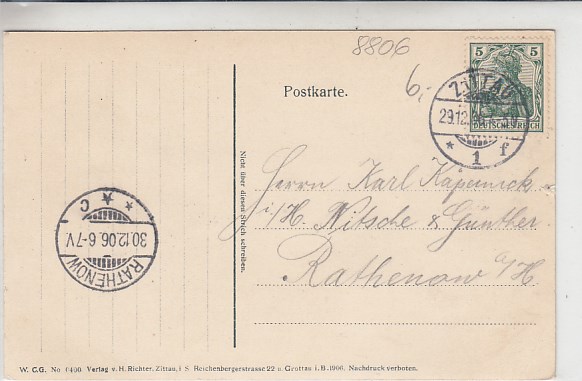 8806
6,-
5 5
DEUTSCHES REICH
ZITTAU
29.12.
* 1 f
Postkarte.
Nicht über diesen Strich schreiben.
Herrn Karl Käpernick
i/H. Nitsche & Günther
Rathenow a/H
RATHENOW
30.12.06.6-7V.
* * C
W. C.G. No 0400 Verlag v. H. Richter, Zittau, i S. Reichenbergerstrasse 22 u. Grottau i. B. 1906. Nachdruck verboten.